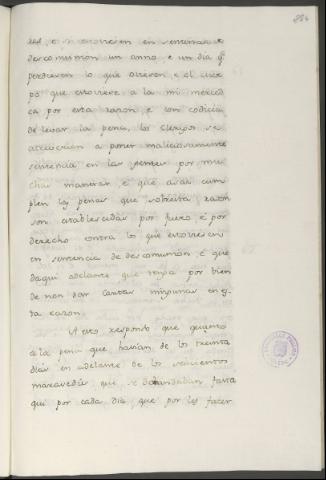 884
des, e si estovieren en sentencia e
descomunion un anno, e un dia q̃
perdiesen lo que ovieren e el cuer
po que estoviere a la mi merced
ca por esta razon e con codicia
de levar la pena, los clerigos se
atreverian a poner maliciosamente
sentencia en las gentes por mu
chas maneras, e que asas cum
plen las penas que sobresta razon
son establescidas por fuero, e por
derecho contra los que estovieren
en sentencia de descomunion, e que
daqui adelante que tenga por bien
de non dar cartas ningunas en es
ta razon.
A esto respondo que quanto
a la pena que havian de los treinta
dias en adelante de los seiscientos
maravedis que se demandaban fasta
qui por cada dia, que por les facer